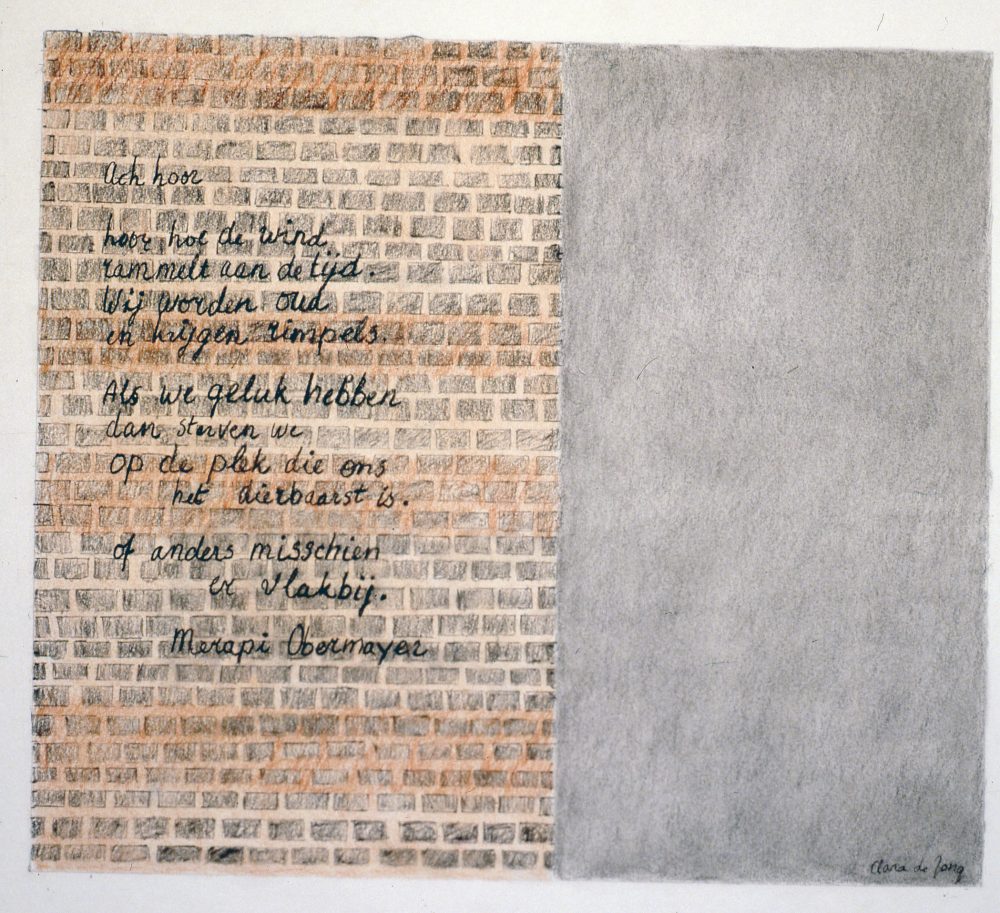 Ach hoor
hoor hoe de wind
rammelt aan de tijd.
Wij worden oud
en krijgen rimpels.
Als we geluk hebben
dan sterven we
op de plek die ons
het dierbaarst is.
of anders misschien
er vlakbij.
Merapi Obermayer
Clara de Jong